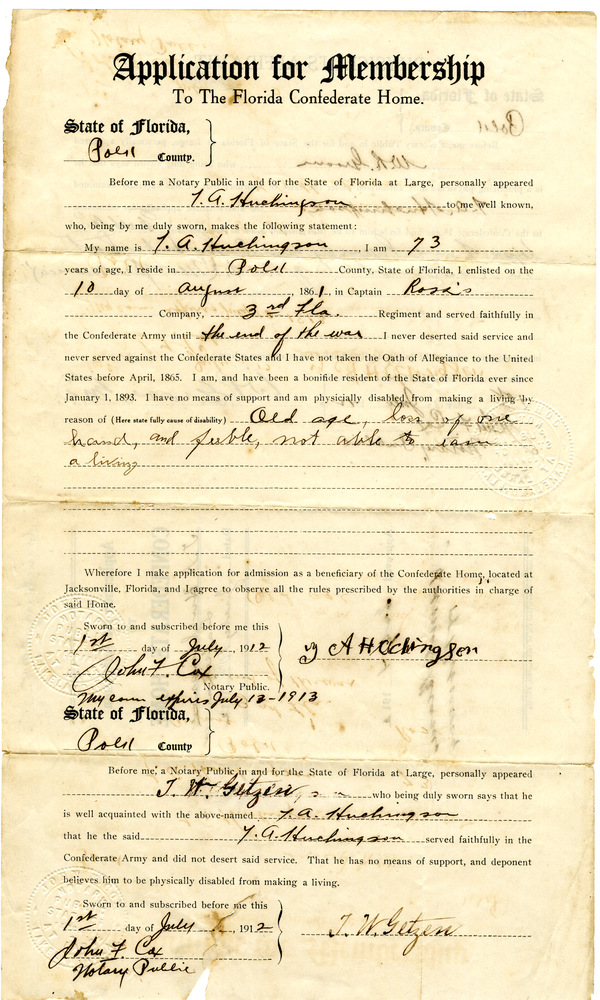 Application for Membership
To The Florida Confederate Home.
State of Florida,
Polk County.
Before me a Notary Public in and for the State of Florida at Large, personally appeared
T. A. Huchingson to me well known,
who, being by me duly sworn, makes the following statement:
My name is T. A. Huchingson, I am 73
years of age, I reside in Polk County, State of Florida, I enlisted on the
10 day of august, 1861, in Captain Ross's
Company, 3rd Fla. Regiment and served faithfully in
the Confederate Army until the end of the war I never deserted said service and
never served against the Confederate States and I have not taken the Oath of Allegiance to the United
States before April, 1865. I am, and have been a bonifide resident of the State of Florida ever since
January 1, 1893. I have no means of support and am physicially disabled from making a living by
reason of (Here state fully cause of disability) Old age, loss of one
hand, and feeble, not able to earn
a living
Wherefore I make application for admission as a beneficiary of the Confederate Home, located at
Jacksonville, Florida, and I agree to observe all the rules prescribed by the authorities in charge of
said Home.
Sworn to and subscribed before me this
1st day of July, 1912
A Huchingson
John F. Cox
Notary Public.
My com expires July 13-1913
State of Florida,
Polk County
Before me, a Notary Public in and for the State of Florida at Large, personally appeared
T. W. Getzen, who being duly sworn says that he
is well acquainted with the above-named T. A. Huchingson
that he the said T. A. Huchingson served faithfully in the
Confederate Army and did not desert said service. That he has no means of support, and deponent
believes him to be physically disabled from making a living.
Sworn to and subscribed before me this
1st day of July, 1912
T. W. Getzen
John F. Cox
Notary Public